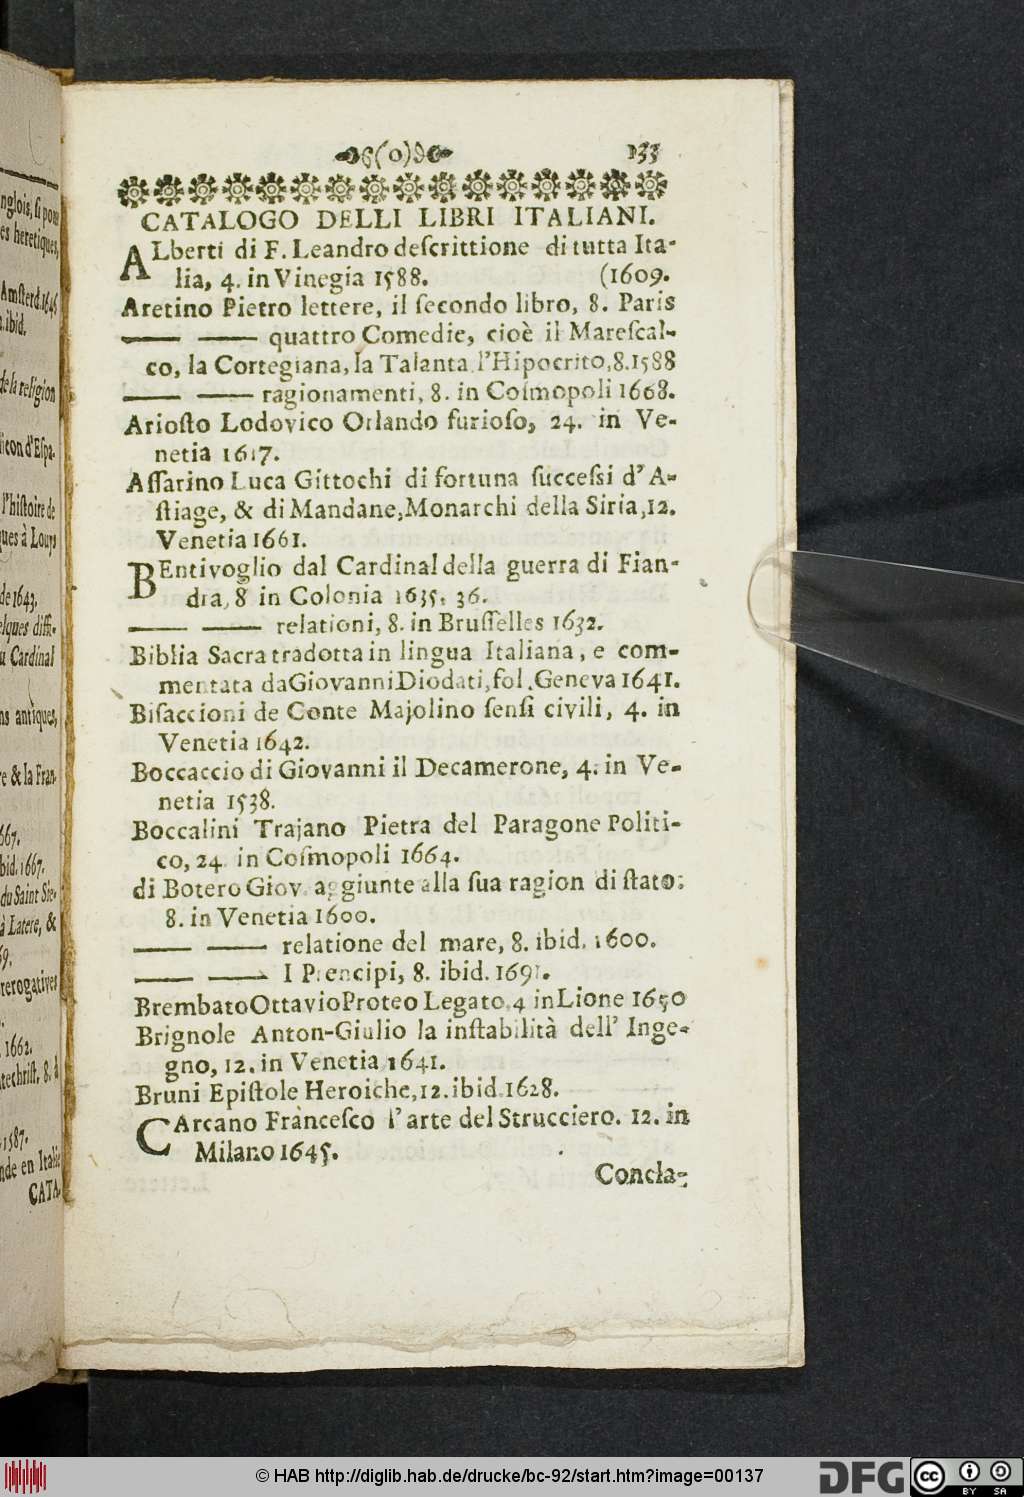 (0) 133
CATALOGO DELLI LIBRI ITALIANI.
ALberti di F. Leandro deſcrittione di tutta Ita-
lia, 4. in Vinegia 1588. (1609.
Aretino Pietro lettere, il ſecondo libro, 8. Paris
—— —— quattro Comedie, cioè il Mareſcal-
co, la Cortegiana, la Talanta l'Hipocrito,8.1588
—— —— ragionamenti, 8. in Coſmopoli 1668.
Arioſto Lodovico Orlando furioſo, 24. in Ve-
netia 1617.
Aſſarino Luca Gittochi di fortuna ſucceſsi d' A-
ſtiage, & di Mandane,Monarchi della Siria,12.
Venetia 1661.
BEntivoglio dal Cardinal della guerra di Fian-
dra, 8 in Colonia 1635. 36.
—— —— relationi, 8. in Bruſſelles 1632.
Biblia Sacra tradotta in lingua Italiana, e com-
mentata daGiovanniDiodati,fol.Geneva 1641.
Biſaccioni de Conte Majolino ſenſi civili, 4. in
Venetia 1642.
Boccaccio di Giovanni il Decamerone, 4. in Ve-
netia 1538.
Boccalini Trajano Pietra del Paragone Politi-
co, 24. in Coſmopoli 1664.
di Botero Giov. aggiunte alla ſua ragion di ſtato:
8. in Venetia 1600.
—— —— relatione del mare, 8. ibid. 1600.
—— —— I Prencipi, 8. ibid. 1691.
BrembatoOttavioProteo Legato.4 inLione 1650
Brignole Anton-Giulio la inſtabilità dell' Inge-
gno, 12. in Venetia 1641.
Bruni Epiſtole Heroiche,12.ibid.1628.
CArcano Franceſco l'arte del Strucciero. 12. in
Milano 1645.
Concla-
nglois, ſi pour
es heretiques,
Amſterd.1646
ibid.
de la religion
d'Eſpa-
l'hiſtoire de
ques à Louys
de 1643.
elques diffi-
u Cardinal
ns antiques,
re & la Fran-
667.
bid.1667.
du Saint Sie-
à Latere, &
69.
terogatives
1662.
techriſt, 8. à
1587.
nde en Italie
CATA-
© HAB http://diglib.hab.de/drucke/bc-92/start.htm?image=00137
DFG
cc
BY SA